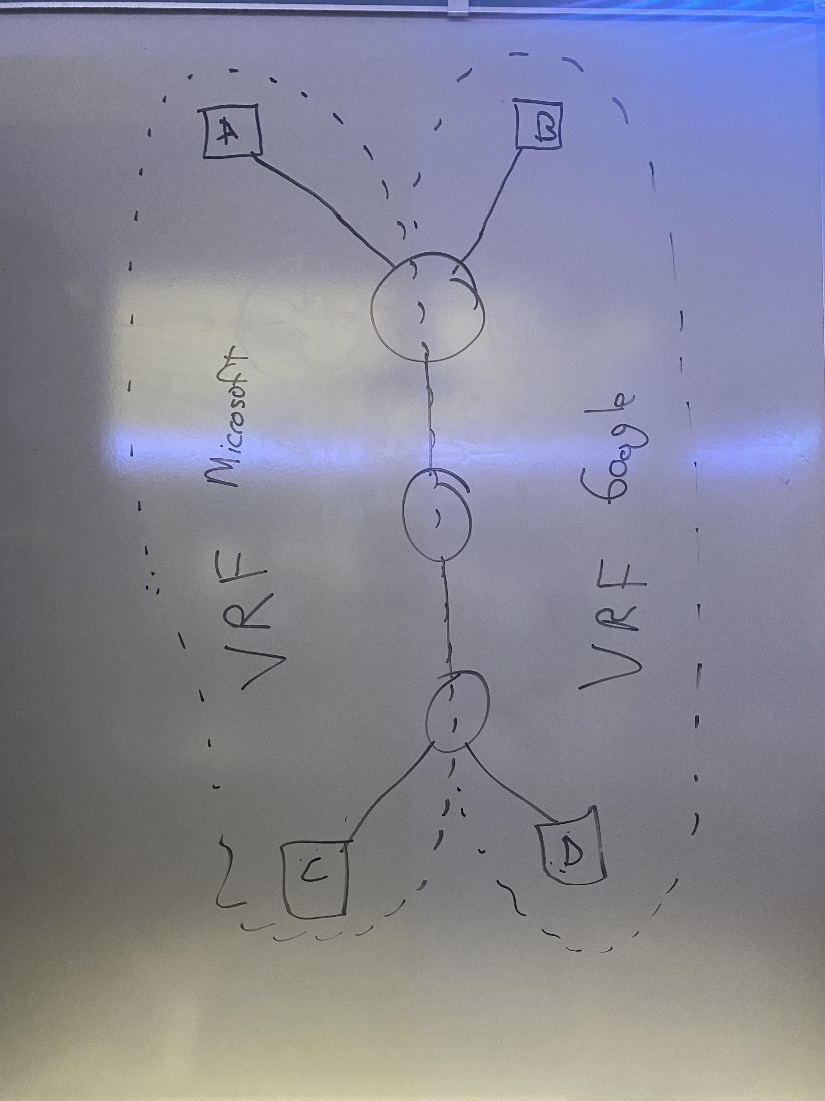 A
B
VRF Microsoft
VRF Google
C
D